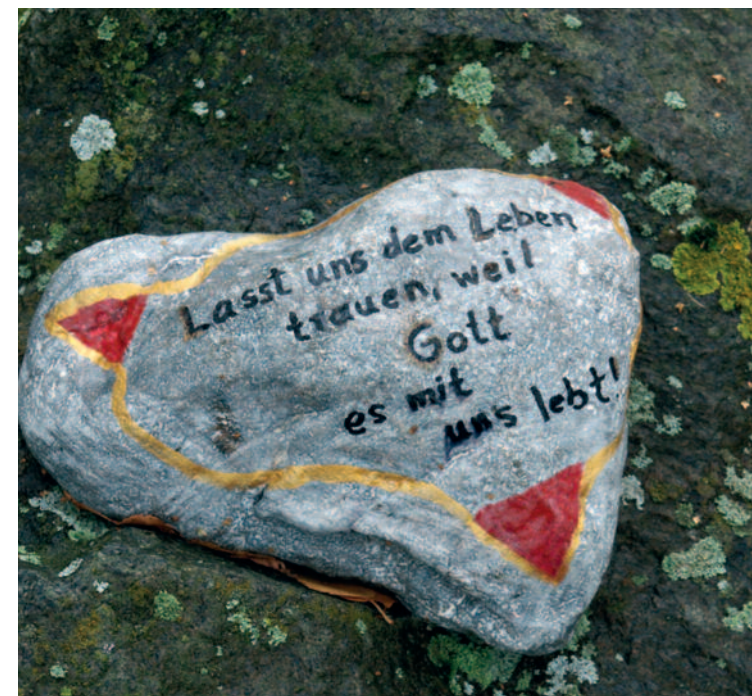 Lasst uns dem Leben
trauen, weil
Gott
es mit
uns lebt!